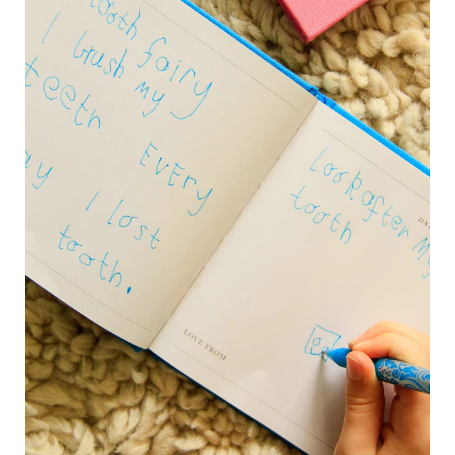 tooth fairy
I brush my
teeth EVEry
ay I lost
tooth.
LOVE FROM
Look after my
tooth